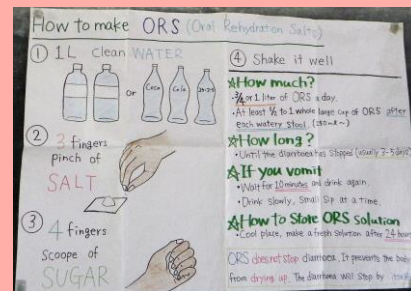 How to make ORS (Oral Rehydration Salts)
① 1L Clean WATER
or
Coca Cola
② 3 fingers
Pinch of
SALT
③ 4 fingers
Scoope of
SUGAR
④ Shake it well
☆How much?
・3/4 or 1 liter of ORS a day.
・At least 1/2 to 1 whole large cup of ORS after
each watery stool.
☆How long?
・Until the diarrhoea has stopped (usually 3-5 days)
☆If you vomit
・Wait for 10 minutes and drink again.
・Drink slowly, small sip at a time.
☆How to Store ORS Solution
・Cool place, make a fresh solution after 24 hours
ORS does not stop diarrhoea. It prevents the body
from drying up. The diarrhoea will stop by itself